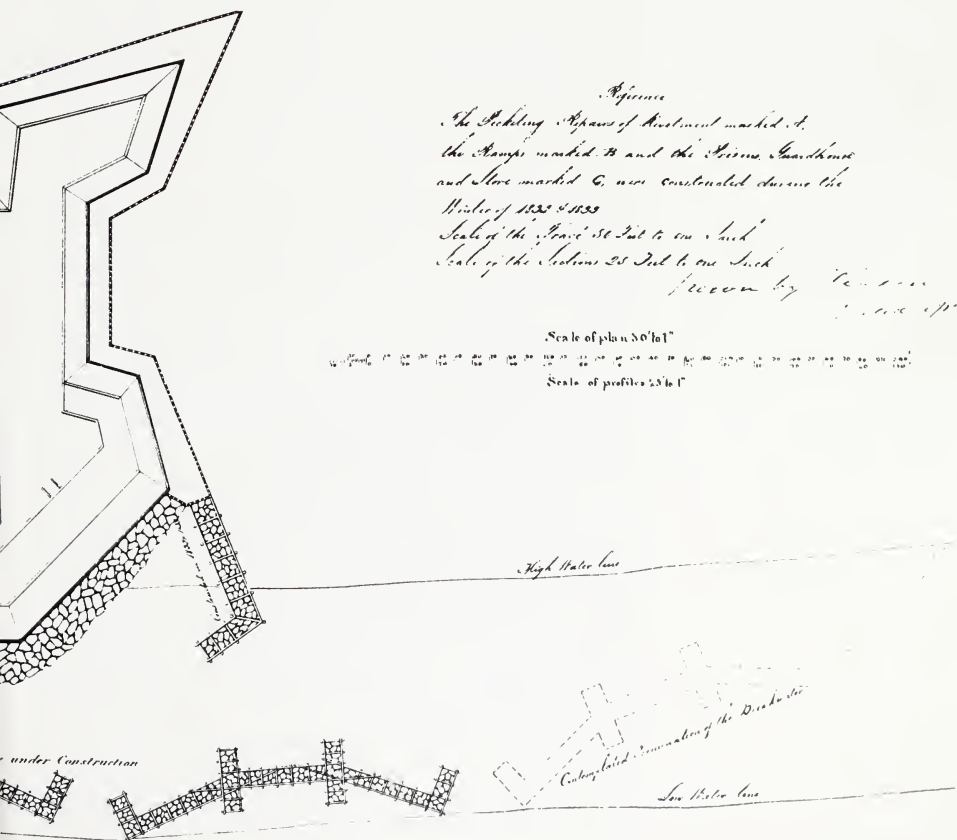 Reference
The Picketing Repairs of Revetment marked A.
the Ramps marked B and the Prisons, Guardhouse
and Store marked C, were constructed during the
Winter of 1832 & 1833
Scale of the Tracé 50 Feet to one Inch
Scale of the Sections 25 Feet to one Inch
by
Scale of plan 50' to 1"
Scale of profiles 25' to 1"
High Water line
under Construction
Contemplated of the Breakwater
Low Water line